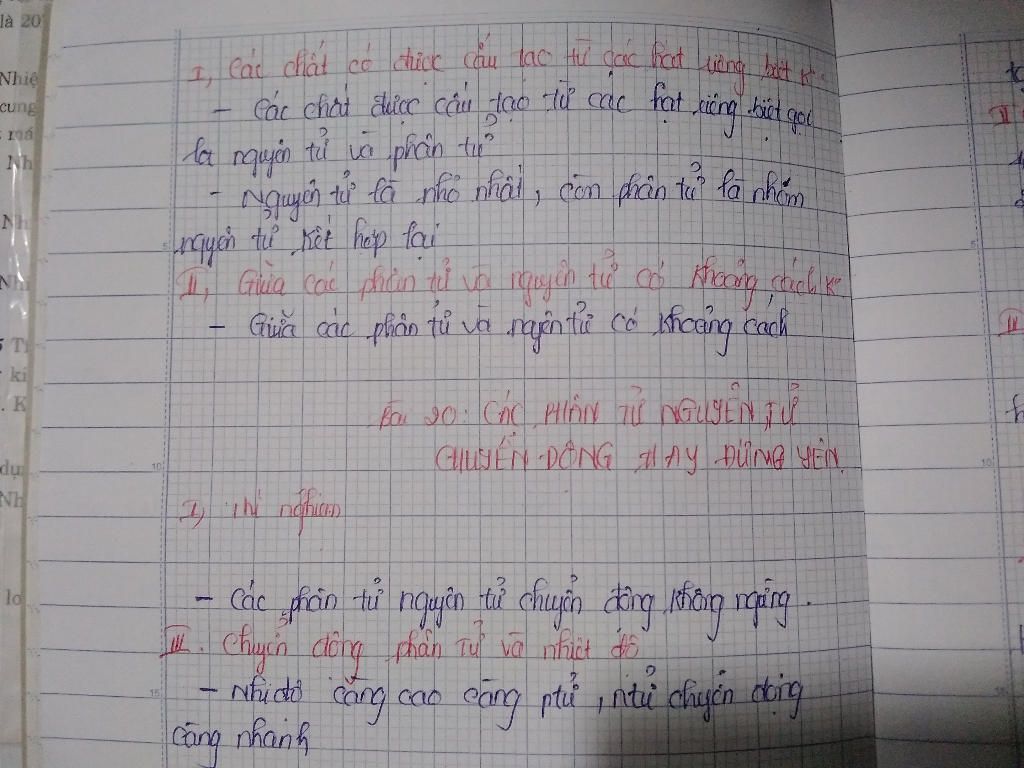 I, Các chất có được cấu tạo từ các hạt riêng biệt k
- Các chất được cấu tạo từ các hạt riêng biệt gọi
là nguyên tử và phân tử
- Nguyên tử là nhỏ nhất, còn phân tử là nhóm
nguyên tử kết hợp lại
II, Giữa các phân tử và nguyên tử có khoảng cách k
- Giữa các phân tử và ngyên tử có khoảng cach
Bài 20: CÁC PHÂN TỬ NGUYÊN TỬ
CHUYỂN ĐỘNG HAY ĐỨNG YÊN
I, thí nghiệm
- Các phân tử nguyên tử chuyển động không ngừng.
III. Chuyển động phân tử và nhiệt độ
- Nhiđộ càng cao càng ptử, ntử chuyển động
càng nhanh
là 20
Nhiệ
cung
Nh
Nh
Nh
ki
. K
dụ
Nh
lo
II
III